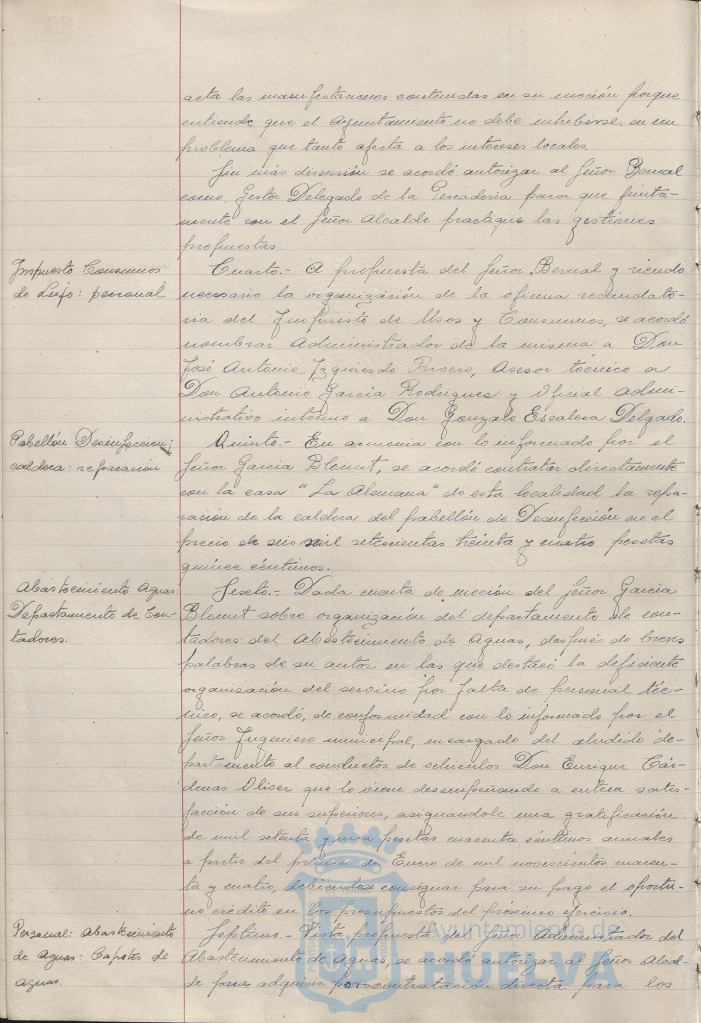 acta las manifestaciones contenidas en su moción porque
entiende que el Ayuntamiento no debe inhibirse en un
problema que tanto afecta a los intereses locales.
Sin más discusión se acordó autorizar al Señor Bernal
como Gestor Delegado de la Pescadería para que junta-
mente con el Señor Alcalde practique las gestiones
propuestas.
Impuesto Consumos
de Lujo: personal
Cuarto.- A propuesta del Señor Bernal y siendo
necesario la organización de la oficina recaudato-
ria del Impuesto de Usos y Consumos, se acordó
nombrar Administrador de la misma a Don
José Antonio Izquierdo, Asesor técnico a
Don Antonio García Rodríguez y Oficial admini-
nistrativo interino a Don Gonzalo Escalera Delgado.
Pabellón Desinfección;
caldera: reparación
Quinto.- En armonía con lo informado por el
Señor García Blomut, se acordó contratar directamente
con la casa "La Alemana" de esta localidad la repa-
ración de la caldera del pabellón de Desinfección en el
precio de seis mil setecientas treinta y cuatro pesetas
quince céntimos.
Abastecimiento Aguas:
Departamento de Con-
tadores.
Sexto.- Dada cuenta de moción del Señor García
Blomut sobre organización del departamento de con-
tadores del Abastecimiento de Aguas, después de breves
palabras de su autor en las que destacó la deficiente
organización del servicio por falta de personal téc-
nico, se acordó, de conformidad con lo informado por el
Señor Ingeniero municipal, encargado del aludido de-
partamento al conductor de vehículos Don Enrique Cár-
denas Oliver que lo viene desempeñando a entera satis-
facción de sus superiores, asignandole una gratificación
de mil setenta y una pesetas cuarenta céntimos anuales
a partir del primero de Enero de mil novecientos cuaren-
ta y cuatro, debiéndose consignar para su pago el oportu-
no crédito en los presupuestos del próximo ejercicio.
Personal: Abastecimiento
de Aguas: Capotes de
aguas.
Septimo.- Vista propuesta del Señor Administrador del
Abastecimiento de Aguas, se acordó autorizar al Señor Alcal-
de para adquirir por contratación directa para los
Ayuntamiento de
HUELVA